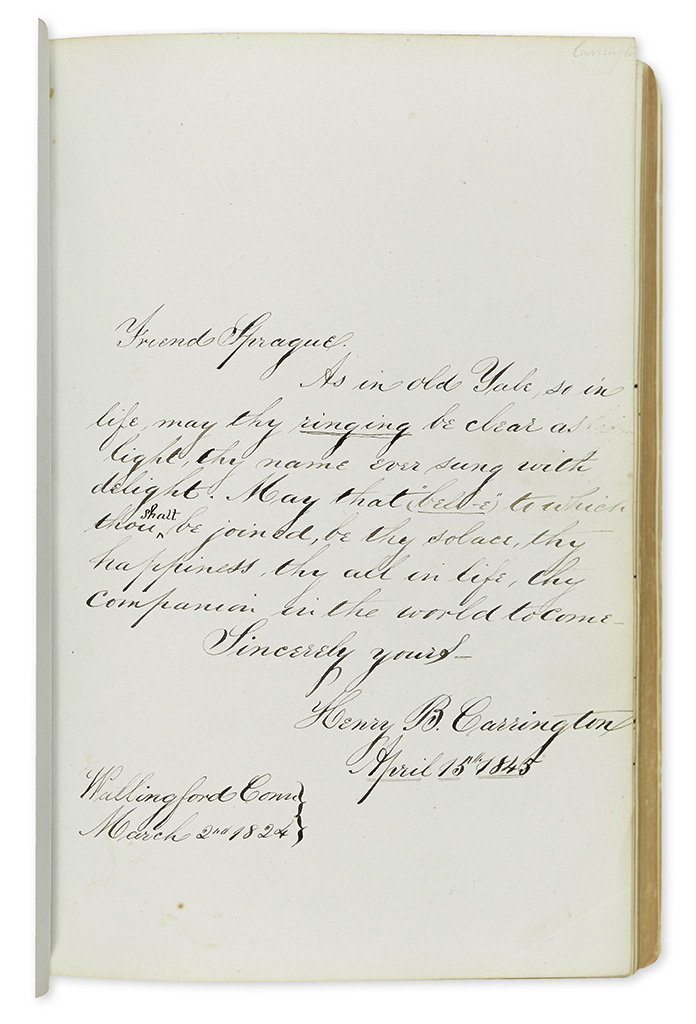 Friend Sprague.
As in old Yale, so in
life, may thy ringing be clear as
light, thy name ever sung with
delight. May that ("bell-e") to which
thou shalt be joined, be thy solace, thy
happiness, thy all in life, thy
companion in the world to come—
Sincerely yours—
Henry B. Carrington
April 15th 1845
Wallingford Conn
March 2nd 1824